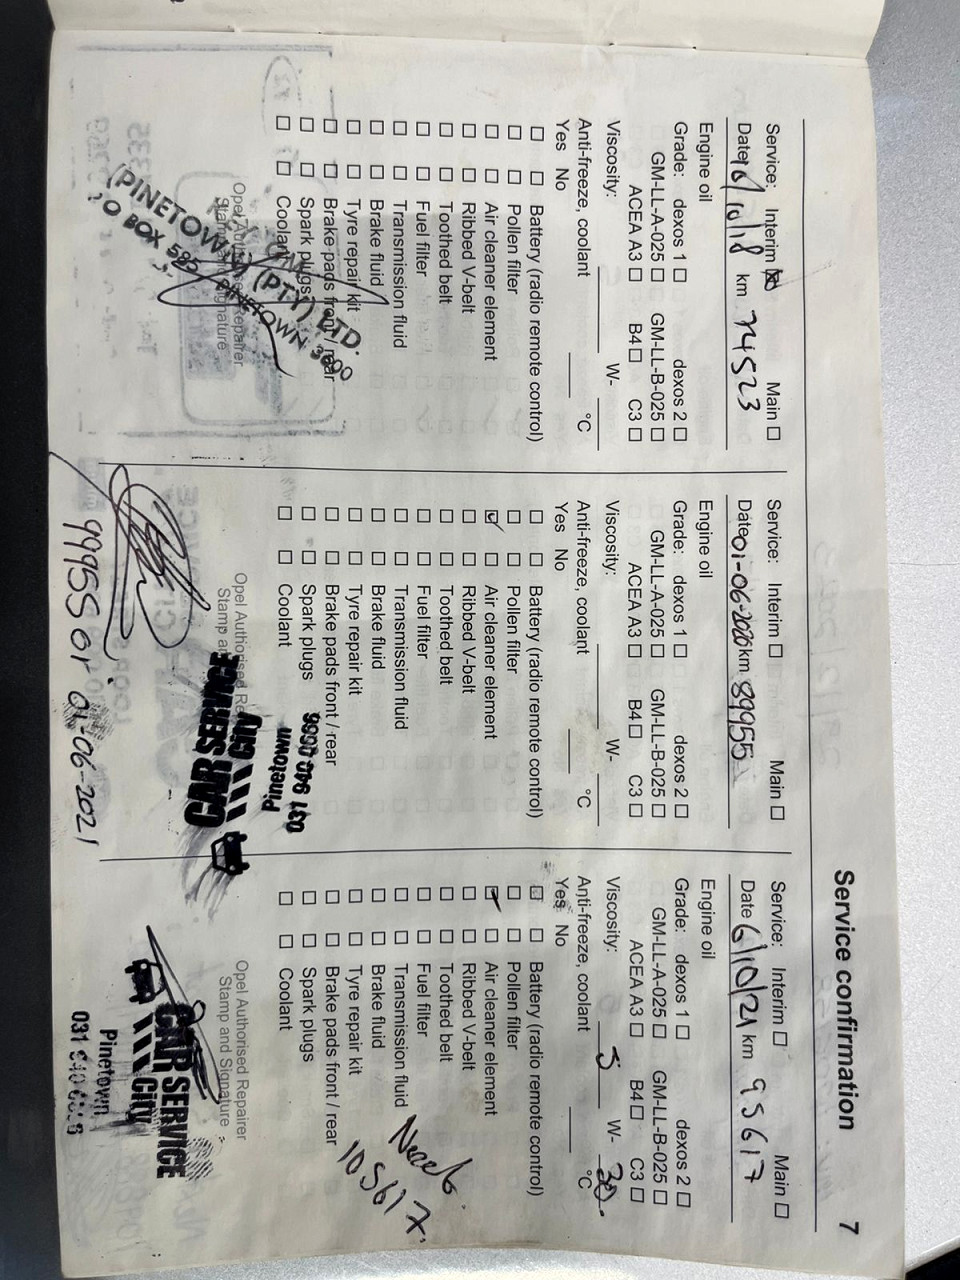 Service confirmation 7
Service: Interim ☒ Main ☐
Date 16/10/18 km 74523
Engine oil
Grade: dexos 1 ☐ dexos 2 ☐
GM-LL-A-025 ☐ GM-LL-B-025 ☐
ACEA A3 ☐ B4 ☐ C3 ☐
Viscosity: W-
Anti-freeze, coolant °C
Yes No
☐ ☐ Battery (radio remote control)
☐ ☐ Pollen filter
☐ ☐ Air cleaner element
☐ ☐ Ribbed V-belt
☐ ☐ Toothed belt
☐ ☐ Fuel filter
☐ ☐ Transmission fluid
☐ ☐ Brake fluid
☐ ☐ Tyre repair kit
☐ ☐ Brake pads front / rear
☐ ☐ Spark plugs
☐ ☐ Coolant
Opel Authorised Repairer
Stamp and Signature
(PINETOWN) (PTY) LTD.
PINETOWN 3600
Service: Interim ☐ Main ☐
Date 01-06-2020 km 89955
Engine oil
Grade: dexos 1 ☐ dexos 2 ☐
GM-LL-A-025 ☐ GM-LL-B-025 ☐
ACEA A3 ☐ B4 ☐ C3 ☐
Viscosity: W-
Anti-freeze, coolant °C
Yes No
☐ ☐ Battery (radio remote control)
☐ ☐ Pollen filter
☑ ☐ Air cleaner element
☐ ☐ Ribbed V-belt
☐ ☐ Toothed belt
☐ ☐ Fuel filter
☐ ☐ Transmission fluid
☐ ☐ Brake fluid
☐ ☐ Tyre repair kit
☐ ☐ Brake pads front / rear
☐ ☐ Spark plugs
☐ ☐ Coolant
031 940 0666
Pinetown
Opel Authorised Re
Stamp a
CITY
CAR SERVICE
99955 01-06-2021
Service: Interim ☐ Main ☐
Date 6/10/21 km 95617
Engine oil
Grade: dexos 1 ☐ dexos 2 ☐
GM-LL-A-025 ☐ GM-LL-B-025 ☐
ACEA A3 ☐ B4 ☐ C3 ☐
Viscosity: 5 W- 30
Anti-freeze, coolant °C
Yes No
☐ ☐ Battery (radio remote control)
☐ ☐ Pollen filter
☑ ☐ Air cleaner element
☐ ☐ Ribbed V-belt
☐ ☐ Toothed belt
☐ ☐ Fuel filter
☐ ☐ Transmission fluid
☐ ☐ Brake fluid
☐ ☐ Tyre repair kit
☐ ☐ Brake pads front / rear
☐ ☐ Spark plugs
☐ ☐ Coolant
105617
Opel Authorised Repairer
Stamp and Signature
CAR SERVICE
CITY
Pinetown